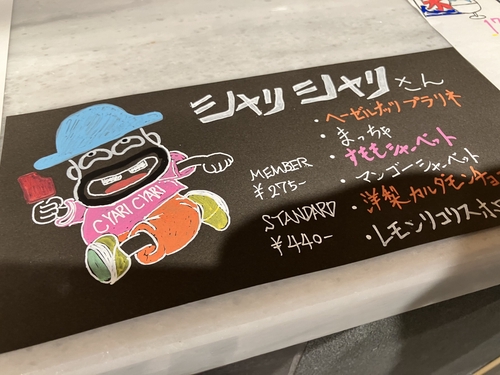 シャリシャリさん
・ヘーゼルナッツプラリネ
・まっちゃ
・すももシャーベット
・マンゴーシャーベット
・洋梨カルダモンチョコ
・レモンリコリスホワ
MEMBER
¥275-
STANDARD
¥440-
CYARI CYARI